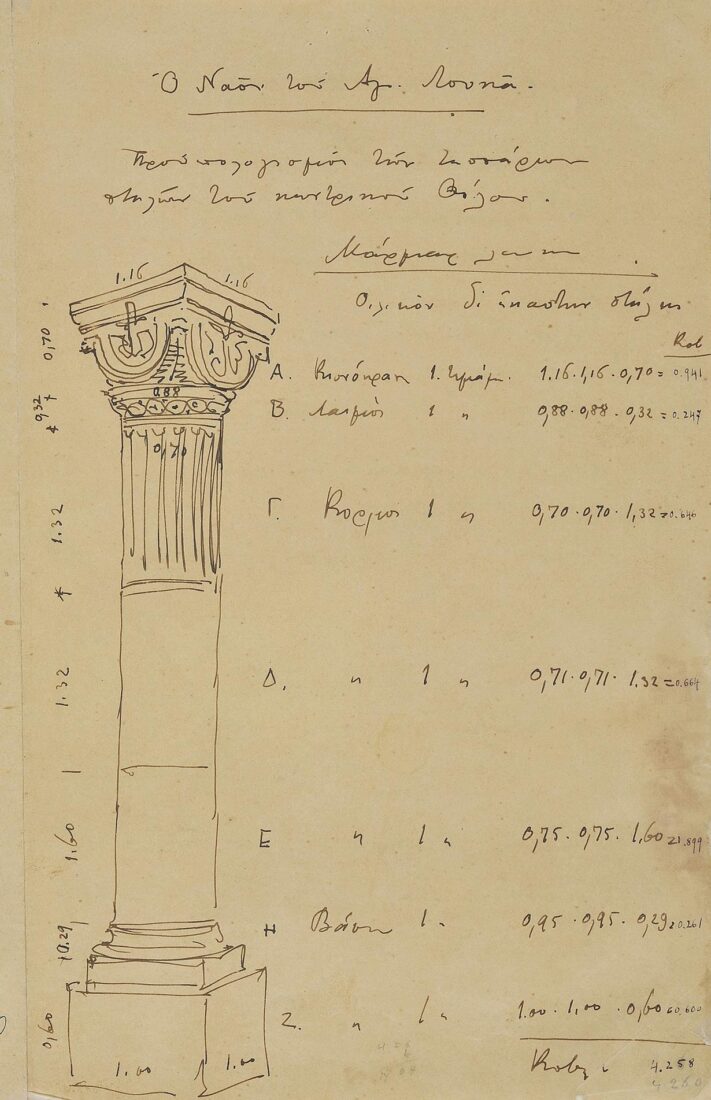 Ὁ Ναὸς τοῦ Ἁγ. Λουκᾶ.
Προϋπολογισμὸς τῶν τεσσάρων
στηλῶν τοῦ κεντρικοῦ Θόλου.
Ὁλικὸν δι' ἑκάστην στήλην
Κυβ
1.16 1.16
0,70
Α. Κιονόκρανον 1. τμῆμ. 1.16. 1,16. 0,70 = 0.941
0,88
0,32
Β. Λαιμὸς 1 " 0,88. 0,88. 0,32 = 0.247
0,70
1.32
Γ. Κορμὸς 1 " 0,70. 0,70. 1,32 = 0.646
1.32
Δ. " 1 " 0,71. 0,71. 1.32 = 0.664
1.60
Ε " 1 " 0,75. 0,75. 1,60 = 0.899
0.29
Η Βάσις 1 " 0,95. 0,95. 0,29 = 0.261
0,60
Ζ. " 1 " 1.00. 1,00. 0,60 = 0,600
1.00 1.00
4.258